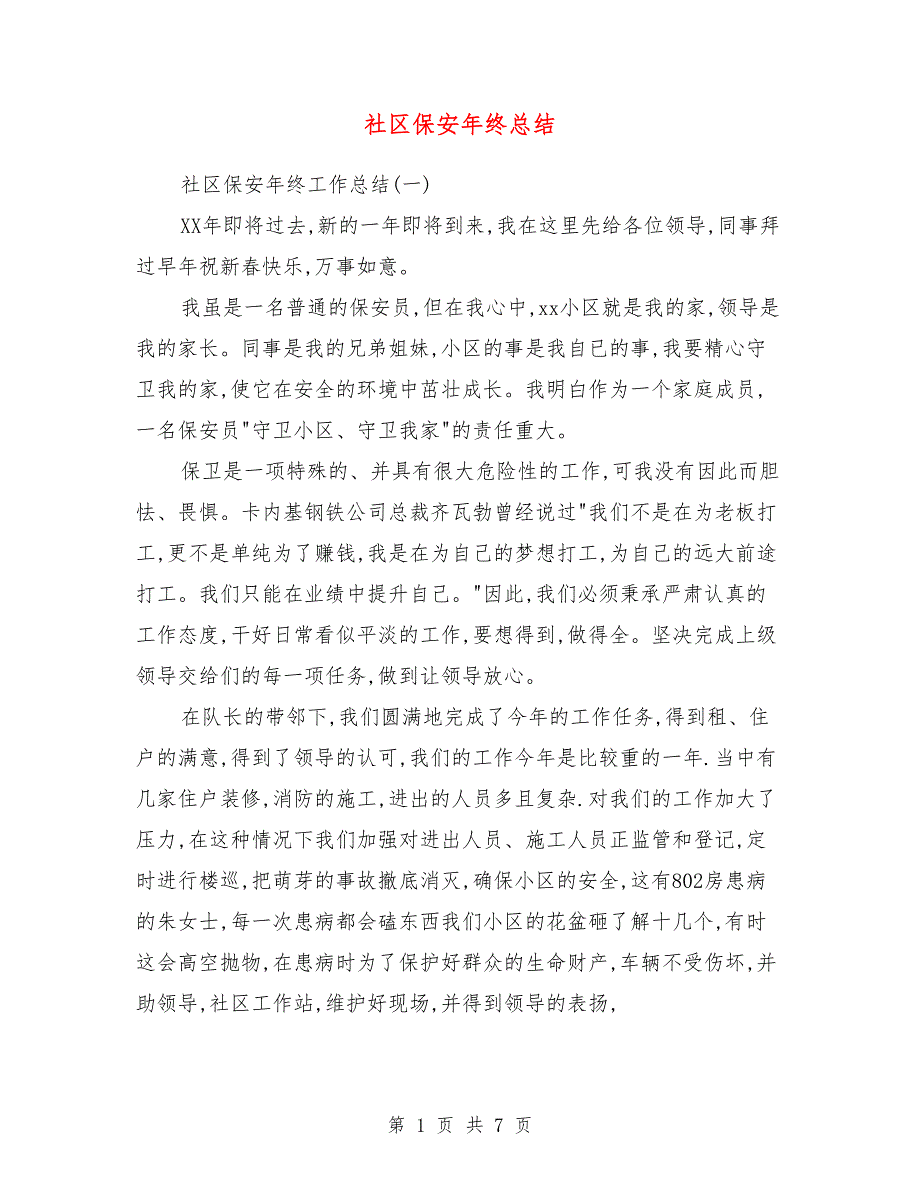 社区保安年终总结
社区保安年终工作总结(一)
XX年即将过去,新的一年即将到来,我在这里先给各位领导,同事拜
过早年祝新春快乐,万事如意。
我虽是一名普通的保安员,但在我心中,xx小区就是我的家,领导是
我的家长。同事是我的兄弟姐妹,小区的事是我自已的事,我要精心守
卫我的家,使它在安全的环境中茁壮成长。我明白作为一个家庭成员,
一名保安员"守卫小区、守卫我家"的责任重大。
保卫是一项特殊的、并具有很大危险性的工作,可我没有因此而胆
怯、畏惧。卡内基钢铁公司总裁齐瓦勃曾经说过"我们不是在为老板打
工,更不是单纯为了赚钱,我是在为自己的梦想打工,为自己的远大前途
打工。我们只能在业绩中提升自己。"因此,我们必须秉承严肃认真的
工作态度,干好日常看似平淡的工作,要想得到,做得全。坚决完成上级
领导交给们的每一项任务,做到让领导放心。
在队长的带邻下,我们圆满地完成了今年的工作任务,得到租、住
户的满意,得到了领导的认可,我们的工作今年是比较重的一年.当中有
几家住户装修,消防的施工,进出的人员多且复杂.对我们的工作加大了
压力,在这种情况下我们加强对进出人员、施工人员正监管和登记,定
时进行楼巡,把萌芽的事故撤底消灭,确保小区的安全,这有802房患病
的朱女士,每一次患病都会磕东西我们小区的花盆砸了解十几个,有时
这会高空抛物,在患病时为了保护好群众的生命财产,车辆不受伤坏,并
助领导,社区工作站,维护好现场,并得到领导的表扬,
第 1 页 共 7 页